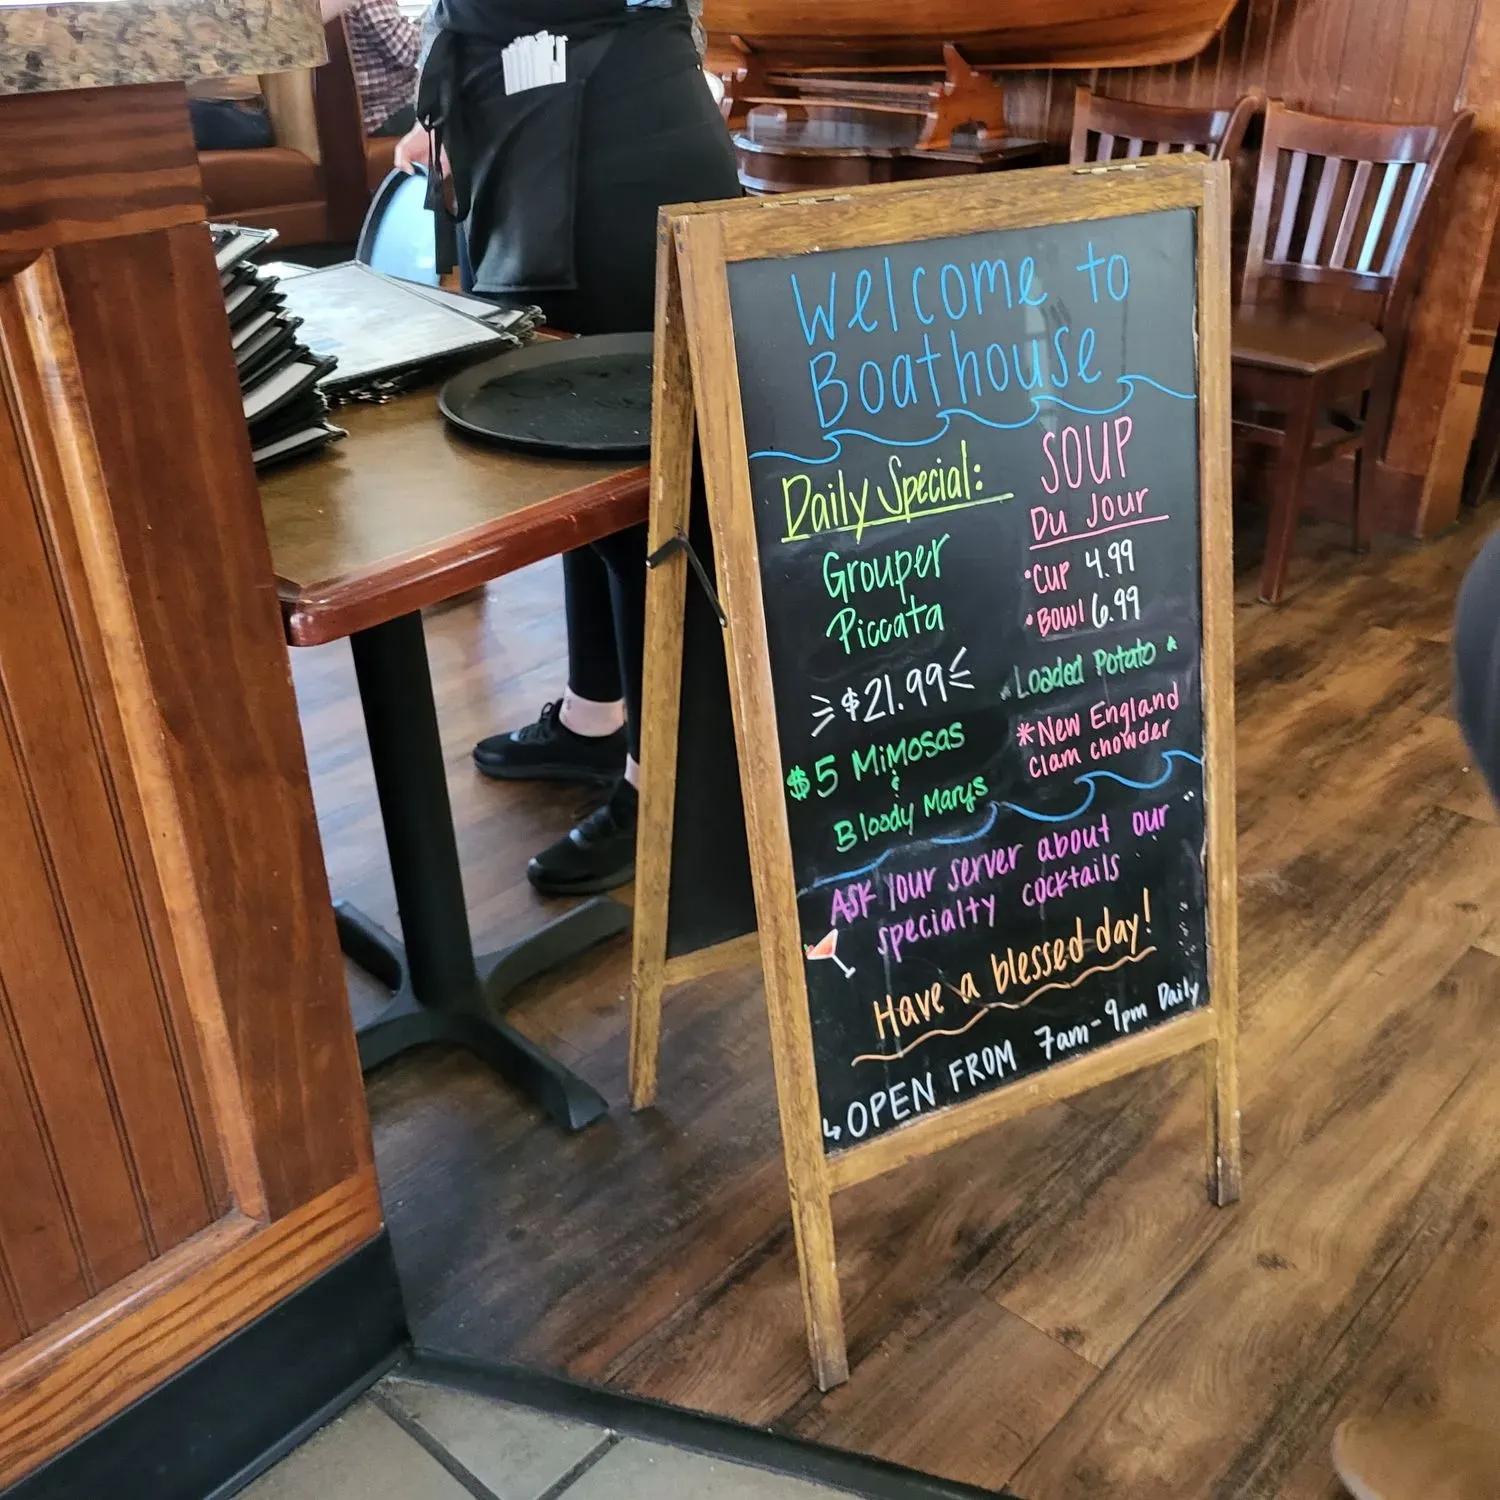 Welcome to
Boathouse
Daily Special:
Grouper
Piccata
$21.99
$5 Mimosas
&
Bloody Marys
SOUP
Du Jour
•CUP 4.99
•BOWl 6.99
Loaded Potato *
*New England
Clam Chowder
ASK Your server about our
specialty cocktails
Have a blessed day!
OPEN FROM 7am-9pm Daily